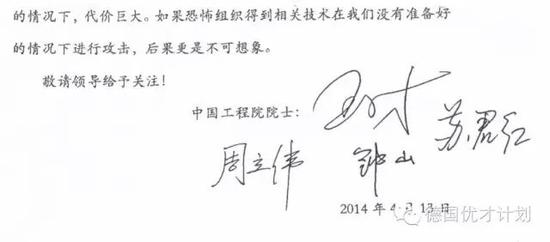 的情况下，代价巨大。如果恐怖组织得到相关技术在我们没有准备好
的情况下进行攻击，后果更是不可想象。
敬请领导给予关注！
中国工程院院士：
苏君红
周立伟
2014年4月13日
德国优才计划